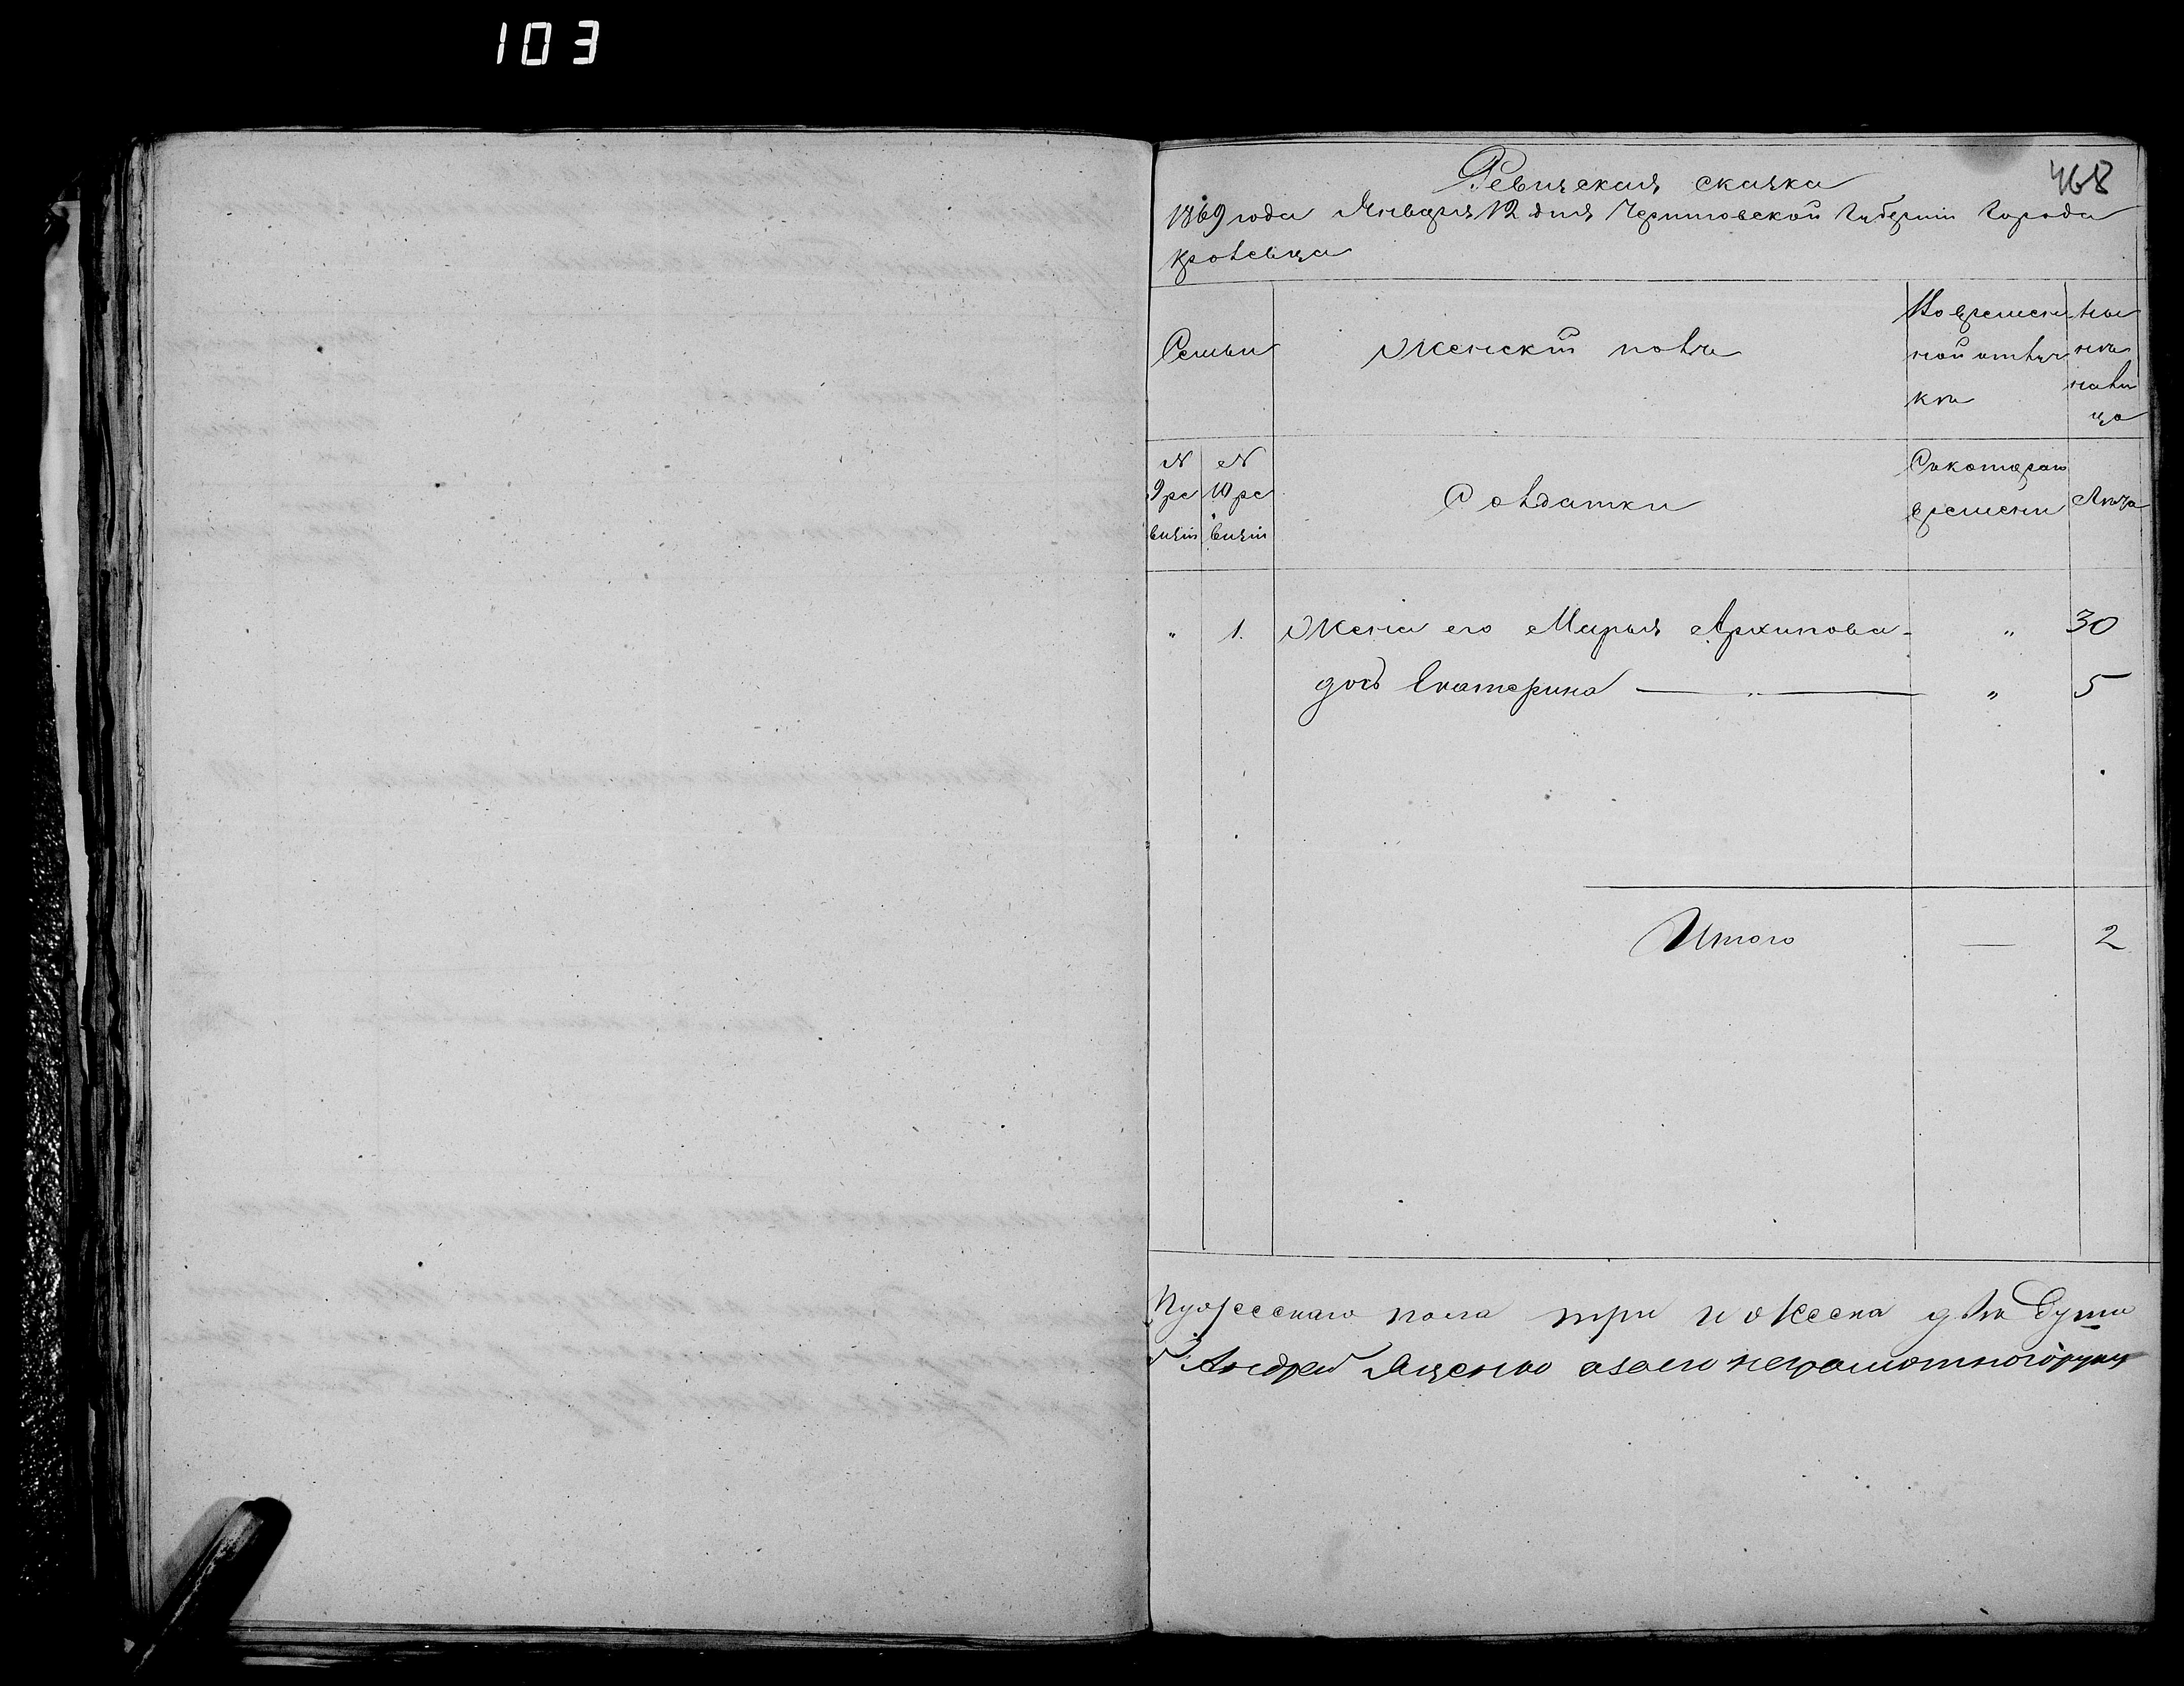 103
468
Ревизская сказка
1869 года Января 12 дня Черниговской Губерніи Города
Кролевца
Семьи
Женскій полъ
Во времен
ной отлуч
кѣ
Ны
нѣ
на ли
цо
N 9 ре
визіи
N 10 ре
визіи
Солдатки
Съ котораго
времени
Лѣта
" 1. Жена его Марья Архипова - " 30
дочь Екатерина — " — " 5
Итого — 2
Мужескаго пола три и женска двѣ души
Андрей Яценко а за его неграмотного руку